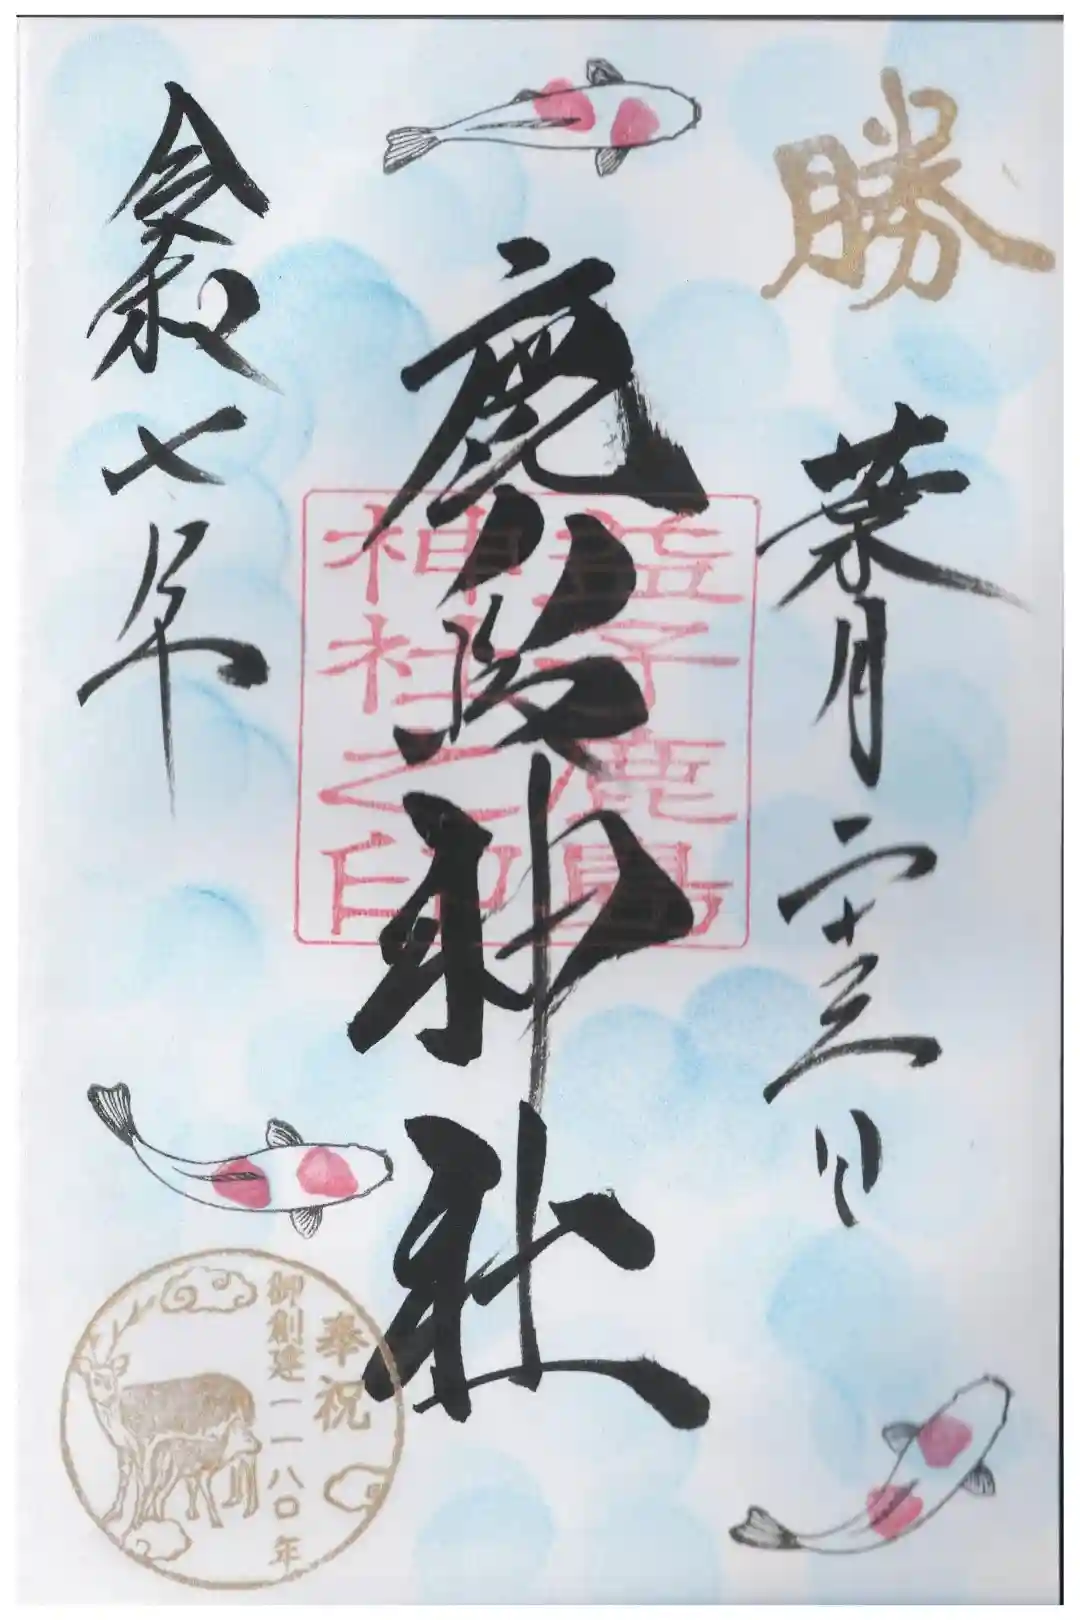 勝
葉月二十三日
鹿島神社
令和七年
益子鹿島
神社之印
奉祝
御創建一一八〇年